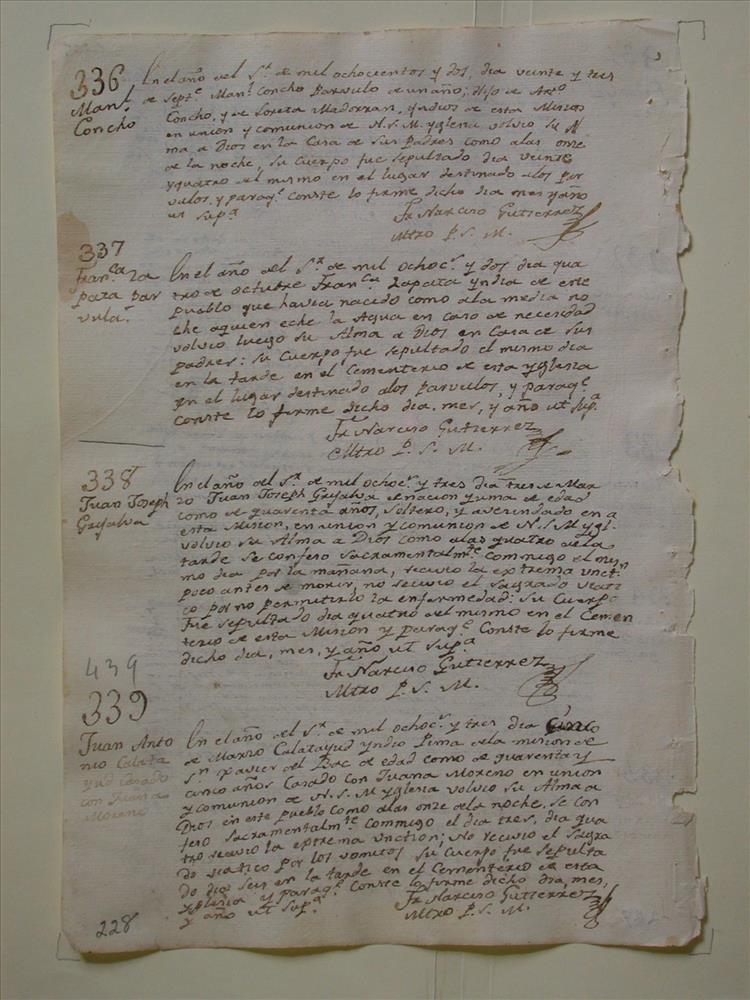 336
Man.l
Concho
En el año del S.r de mil ochocientos y dos, dia veinte y tres
de Sept.e Man.l Concho Parvulo de un año; Hijo de Ant.o
Concho, y de Loreta Madorran, yndios de esta Mision
en union y comunion de N. S. M. yglesia volvio su Al
ma a Dios en la Casa de sus Padres como a las onse
de la noche, su Cuerpo fue sepultado dia veinte
y quatro del mismo en el lugar destinado a los Par
vulos, y paraq.e Conste lo firme dicho dia mes y año
ut sup.a
Fr. Narciso Gutierrez
Mtro P. S. M.
337
Fran.ca Za
pata Par
vula
En el año del S.r de mil ochoc.s y dos dia qua
tro de octubre Fran.ca Zapata yndia de este
pueblo que havia nacido como a la media no
che aquien eche la Agua en caso de necesidad
volvio luego su Alma a Dios en Casa de sus
padres: su Cuerpo fue sepultado el mismo dia
en la tarde en el Cementerio de esta yglesia
en el lugar destinado a los Parvulos, y paraq.e
Conste lo firme dicho dia, mes, y año ut sup.a
Fr. Narciso Gutierrez
Mtro P. S. M.
338
Juan Joseph
Grijalva
En el año del S.r de mil ochoc.s y tres dia tres de Mar
zo Juan Joseph Grijalva de nacion yuma de edad
como de quarenta años, soltero, y avecindado en
esta Mision, en union y comunion de N. S. M. ygl.
volvio su Alma a Dios como a las quatro de la
tarde se confeso sacramentalm.te commigo el mes
mo dia por la mañana, recivio la extrema Unct.n
poco antes de morir, no recivio el Sagrado Viati
co por no permitirlo la enfermedad: su Cuerpo
fue sepultado dia quatro del mismo en el Cemen
terio de esta Mision y paraq.e Conste lo firme
dicho dia, mes, y año ut sup.a
Fr. Narciso Gutierrez
Mtro P. S. M.
439
339
Juan Anto
nio Calata
yud Casado
con Juana
Moreno
En el año del S.r de mil ochoc.s y tres dia cinco
de Marzo Calatayud yndio Pima de la mision de
S.n Xavier del Bac de edad como de quarenta y
cinco años Casado con Juana Moreno en union
y comunion de N. S. M. yglesia volvio su Alma a
Dios en este pueblo como a las onse de la noche, se con
feso sacramentalm.te commigo el dia tres, dia qua
tro recivio la extrema unction; No recivio el Sagra
do viatico por los vomitos su Cuerpo fue sepulta
do dia seis en la tarde en el Cementerio de esta
yglesia y paraq.e Conste lo firme dicho dia, mes,
y año ut sup.a
Fr. Narciso Gutierrez
Mtro P. S. M.
228